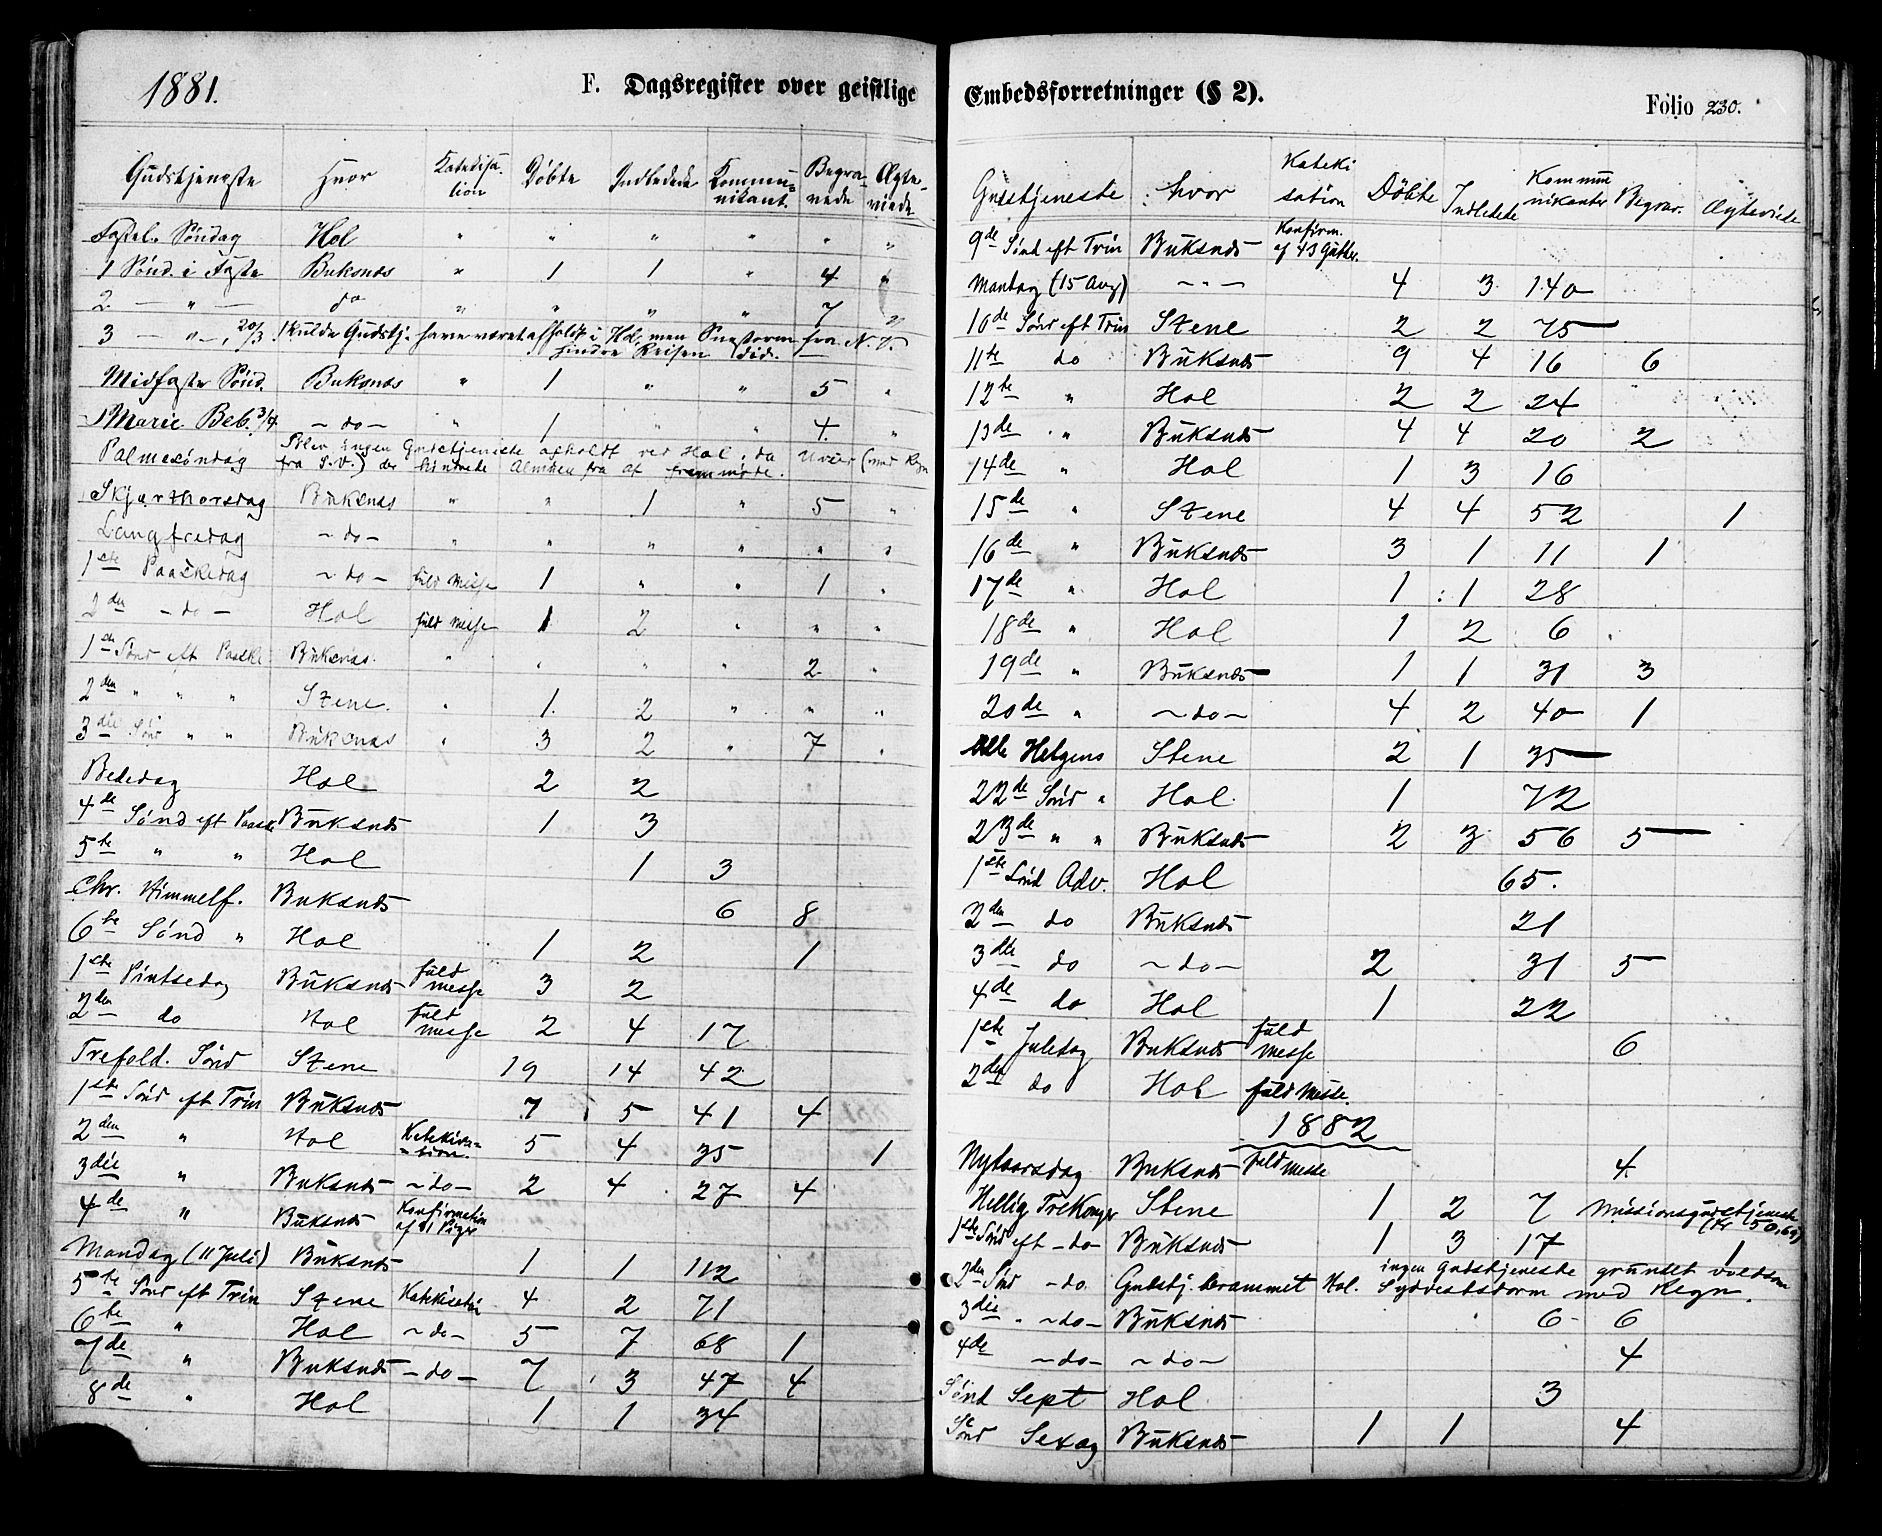 1881.
F. Dagsregister over geistlige
Gudstjeneste Hvor Katekisation Døbte Indledede Kommunikant. Begravede Ægteviede
Fastel. Søndag Hol " " " " " "
1 Sønd. i Faste Buksnes " 1 1 " 4 "
2 — " — do " " " " 7 "
3 — " —, 20/3 skulde Gudstj. have været afholdt i Hol, men Snestorm fra N.V.
hindre Reisen did.
Midfaste Sønd. Buksnes " 1 " " 5 "
Marie Beb. 3/4 — do — " 1 " " 4 "
Palmesøndag Blev ingen Gudstjeneste afholdt ved Hol, da Uveir (med Regn
fra S.V.) der hindrede Almuen fra at fremmøde.
Skjærthorsdag Buksnes " " 1 " 5 "
Langfredag — do — " " " " " "
1ste Paaskedag — do — fuld Messe 1 " " 1 "
2den — do — Hol fuld Messe 1 2 " " "
1ste Sønd eft Paaske Buksnes " " " " 2 "
2den " " " Stene " 1 2 " " "
3die Sønd " " Buksnes " 3 2 " 7 "
Bededag Hol 2 2
4de Sønd eft Paaske Buksnes 1 3
5te " " Hol 1 3
Chr. Himmelf. Buksnes 6 8
6te Sønd " Hol 1 2 1
1ste Pintsedag Buksnes fuld Messe 3 2
2den do Hol fuld Messe 2 4 17
Trefold. Sønd Stene 19 14 42
1ste Sønd eft Trin Buksnes 7 5 41 4
2den " Hol Katekisation 5 4 35 1
3die " Buksnes — do — 2 4 27 4
4de " Buksnes Konfirmation af 41 Piger
Mandag (11 Juli) Buksnes 1 1 112
5te Sønd eft Trin Stene 4 2 71
6te " Hol — do — 5 7 68 1
7de " Buksnes — do — 7 3 47 4
8de " Hol 1 1 34
Embedsforretninger (§ 2).
Folio 230.
Gudstjeneste hvor Katekisation Døbte Indledede Kommunikanter Begrav. Ægteviede
9de Sønd eft Trin Buksnes Konfirm. af 43 Gutter.
Mandag (15 Aug) — " — 4 3 140
10de Sønd eft Trin Stene 2 2 75
11te do Buksnes 9 4 16 6
12te " Hol 2 2 24
13de " Buksnes 4 4 20 2
14de " Hol 1 3 16
15de " Stene 4 4 52 1
16de " Buksnes 3 1 11 1
17de " Hol 1 1 28
18de " Hol 1 2 6
19de " Buksnes 1 1 31 3
20de " — do — 4 2 40 1
Alle Helgens Stene 2 1 35
22de Sønd " Hol 1 72
23de " " Buksnes 2 3 56 5
1ste Sønd Adv. Hol 65.
2den do Buksnes 21
3die do — do — 2 31 5
4de do Hol 1 22
1ste Juledag Buksnes fuld Messe 6
2den do Hol fuld Messe.
1882
Nytaarsdag Buksnes fuld Messe 4
Hellig Trekonger Stene 1 2 7 Missionsgudstjeneste
1ste Sønd eft — do — Buksnes 1 3 17 1
2den Sønd — do. Gudstj. berammet Hol. ingen Gudstjeneste grundet voldsom
Sydveststorm med Regn.
3die " — do — Buksnes 6 6
4de — do — — do — 4
Sønd Sept Hol 3
Sønd Sexag Buksnes 1 1 4